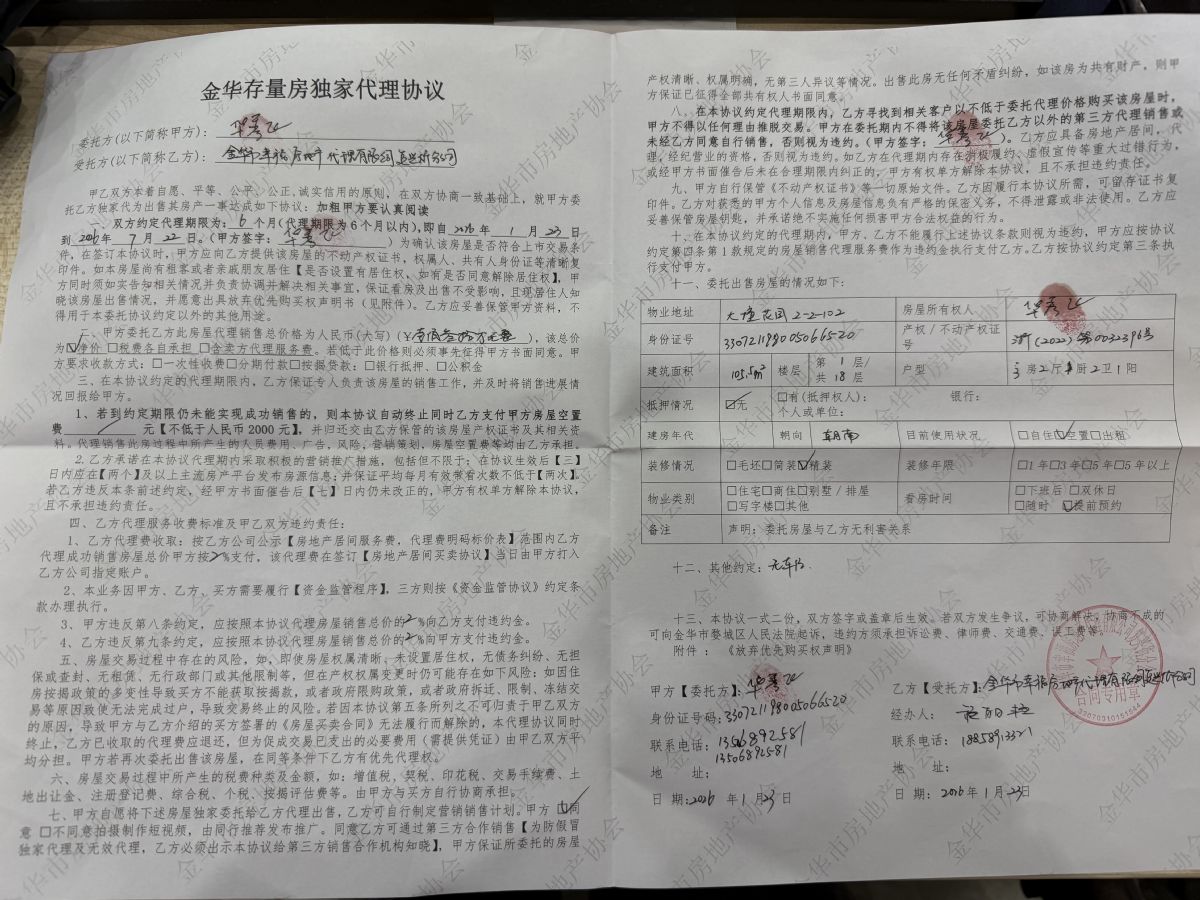 金华存量房独家代理协议
委托方(以下简称甲方):
受托方(以下简称乙方): 金华市幸福房地产代理有限公司
甲乙双方本着自愿、平等、公平、公正,诚实信用的原则,在双方协商一致基础上,就甲方委
托乙方独家代为出售其房产一事达成如下协议:加粗甲方要认真阅读
一、双方约定代理期限为: 6 个月(代理期限为6个月以内),即自 2026 年 1 月 23 日
到 2026 年 7 月 22 日。(甲方签字: )为确认该房屋是否符合上市交易条
件,在签订本协议时,甲方应向乙方提供该房屋的不动产权证书,权属人、共有人身份证等清晰复
印件。如本房屋尚有租客或者亲戚朋友居住【是否设置有居住权、如有是否同意解除居住权】,甲
方同时须如实告知相关情况并负责协调并解决相关事宜,保证看房及出售不受影响,且现居住人知
晓该房屋出售情况,并愿意出具放弃优先购买权声明书(见附件)。乙方应妥善保管甲方资料,不
得用于本委托协议约定以外的其他用途。
二、甲方委托乙方此房屋代理销售总价格为人民币(大写)(¥ ),该总价
为☑净价 □税费各自承担 □含卖方代理服务费。若低于此价格则必须事先征得甲方书面同意。甲
方要求收款方式:□一次性收费□分期付款□按揭贷款:□银行抵押、□公积金
三、在本协议约定的代理期限内,乙方保证专人负责该房屋的销售工作,并及时将销售进展情
况回报给甲方。
1、若到约定期限仍未能实现成功销售的,则本协议自动终止同时乙方支付甲方房屋空置
费 元【不低于人民币2000元】,并归还交由乙方保管的该房屋产权证书及其相关资
料。代理销售此房过程中所产生的人员费用、广告,风险,营销策划,房屋空置费等均由乙方承担。
2.乙方承诺在本协议代理期内采取积极的营销推广措施,包括但不限于:在协议生效后【三】
日内应在【两个】及以上主流房产平台发布房源信息;并保证平均每月有效带看次数不低于【两次】。
若乙方违反本条前述约定,经甲方书面催告后【七】日内仍未改正的,甲方有权单方解除本协议,
且不承担违约责任。
四、乙方代理服务收费标准及甲乙双方违约责任:
1、乙方代理费收取:按乙方公司公示【房地产居间服务费,代理费明码标价表】范围内乙方
代理成功销售房屋总价甲方按2%支付,该代理费在签订【房地产居间买卖协议】当日由甲方打入
乙方公司指定账户。
2、本业务因甲方、乙方、买方需要履行【资金监管程序】,三方则按《资金监管协议》约定条
款办理执行。
3、甲方违反第八条约定,应按照本协议代理房屋销售总价的2%向乙方支付违约金。
4、乙方违反第九条约定,应按照本协议代理房屋销售总价的2%向甲方支付违约金。
五、房屋交易过程中存在的风险,如,即使房屋权属清晰、未设置居住权,无债务纠纷、无担
保或查封、无租赁、无行政部门或其他限制等,但在产权权属变更时仍可能存在如下风险:如因住
房按揭政策的多变性导致买方不能获取按揭款,或者政府限购政策,或者政府拆迁、限制、冻结交
易等原因致使无法完成过户,导致交易终止的风险。若因本协议第五条所列之不可归责于甲乙双方
的原因,导致甲方与乙方介绍的买方签署的《房屋买卖合同》无法履行而解除的,本代理协议同时
终止,乙方已收取的代理费应退还,但为促成交易已支出的必要费用(需提供凭证)由甲乙双方平
均分担。甲方若再次委托出售该房屋,在同等条件下乙方有优先代理权。
六、房屋交易过程中所产生的税费种类及金额,如:增值税,契税、印花税、交易手续费、土
地出让金、注册登记费、综合税、个税、按揭评估费等。由甲方与买方自行协商承担。
七、甲方自愿将下述房屋独家委托给乙方代理出售,乙方可自行制定营销销售计划。甲方 ☑同
意 □不同意拍摄制作短视频,由同行推荐发布推广。同意乙方可通过第三方合作销售【为防假冒
独家代理及无效代理,乙方必须出示本协议给第三方销售合作机构知晓】,甲方保证所委托的房屋
产权清晰、权属明确,无第三人异议等情况。出售此房无任何矛盾纠纷,如该房为共有财产,则甲
方保证已征得全部共有权人书面同意。
八、在本协议约定代理期限内,乙方寻找到相关客户以不低于委托代理价格购买该房屋时,
甲方不得以任何理由推脱交易。甲方在委托期内不得将该房屋委托乙方以外的第三方代理销售或
未经乙方同意自行销售,否则视为违约。(甲方签字: )。乙方应具备房地产居间,代
理,经纪营业的资格,否则视为违约。如乙方在代理期内存在消极履约、虚假宣传等重大过错行为,
或经甲方书面催告后未在合理期限内纠正的,甲方有权单方解除本协议,且不承担违约责任。
九、甲方自行保管《不动产权证书》等一切原始文件。乙方因履行本协议所需,可留存证书复
印件。乙方对获悉的甲方个人信息及房屋信息负有严格的保密义务,不得泄露或非法使用。乙方应
妥善保管房屋钥匙,并承诺绝不实施任何损害甲方合法权益的行为。
十、在本协议约定的代理期内,甲方、乙方不能履行上述协议条款则视为违约,甲方应按协议
约定第四条第1款规定的房屋销售代理服务费作为违约金执行支付乙方。乙方按协议约定第三条执
行支付甲方。
十一、委托出售房屋的情况如下:
物业地址 2-2-102 房屋所有权人
身份证号 330721198005066520 产权/不动产权证号 浙(2022) 第0032396号
建筑面积 105.5m² 楼层 第 1 层/共 18 层 户型 3房2厅1厨2卫1阳
抵押情况 ☑无 □有(抵押权人): 银行: 个人或单位:
建房年代 朝向 朝南 目前使用状况 □自住☑空置□出租
装修情况 □毛坯□简装☑精装 装修年限 □1年□3年□5年□5年以上
物业类别 □住宅□商住□别墅/排屋 □写字楼□其他 看房时间 □下班后 □双休日 □随时 ☑提前预约
备注 声明:委托房屋与乙方无利害关系
十二、其他约定:无车位.
十三、本协议一式二份,双方签字或盖章后生效。若双方发生争议,可协商解决,协商不成的
可向金华市婺城区人民法院起诉,违约方须承担诉讼费、律师费、交通费、误工费等。
附件: 《放弃优先购买权声明》
甲方【委托方】:
身份证号码:330721198005066520
联系电话:13506892581
13506892581
地 址:
日 期:2026 年 1 月 23 日
乙方【受托方】:金华市幸福房地产代理有限公司
经办人:
联系电话:18858913321
地 址:
日 期: 2026 年 1 月 23日
合同专用章
33070310151584
金华市房地产协会